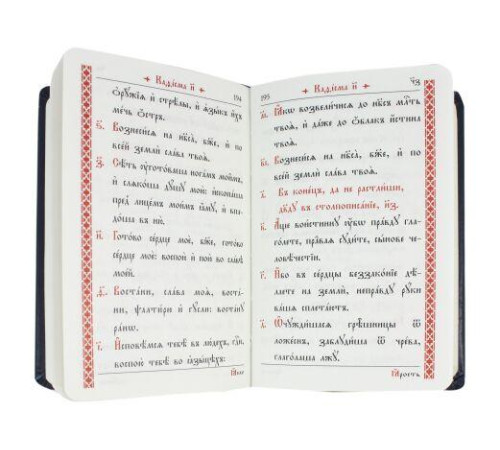 Каѳі́сма и҃
194
ѻ҆рꙋ̑жїѧ и҆ стрѣ́лы, и҆ ѧ҆зы́къ и҆́хъ
ме́чь ѻ҆́стръ.
Вознеси́сѧ на нб҃са̀, бж҃е, и҆ по
всеѝ землѝ сла́ва твоѧ̀.
Сѣ́ть ᲂу҆гото́ваша нога́мъ мои̑мъ,
и҆ слѧко́ша дꙋ́шꙋ мою̀: и҆скопа́ша
пред̾ лице́мъ мои́мъ ꙗ҆́мꙋ, и҆ впа-
до́ша в̾ ню̀.
Гото́во се́рдце моѐ, бж҃е, гото́во
се́рдце моѐ: воспою̀ и҆ пою̀ во сла́вѣ
мое́й.
Воста́ни, сла́ва моѧ̀, воста́-
ни, ѱалти́рю и҆ гꙋ́сли: воста́нꙋ
ра́нѡ.
И҆сповѣ́мсѧ тебѣ̀ в̾ лю́дехъ, гдⷭ҇и,
воспою̀ тебѣ̀ во ꙗ҆зы́цѣхъ:
Ꙗ҆́кѡ
195
Каѳі́сма и҃
Ꙗ҆́кѡ возвели́чисѧ до нб҃съ млⷭ҇ть
твоѧ̀, и҆ да́же до ѻ҆́блакъ и҆́стина
твоѧ̀.
Вознеси́сѧ на нб҃са̀, бж҃е, и҆ по
всеѝ землѝ сла́ва твоѧ̀.
Въ коне́цъ, да не растли́ши,
дв҃дꙋ въ столпописа́нїе, н҃з.
А҆́ще вои́стиннꙋ ᲂу҆́бѡ пра́вдꙋ гла-
го́лете, пра̑ваѧ сꙋди́те, сы́нове че-
ловѣ́честїи.
И҆́бо въ се́рдцы беззако́нїе дѣ́-
лаете на землѝ, непра́вдꙋ рꙋ́ки
ва́шѧ сплета́ютъ.
Ѿчꙋжди́шасѧ грѣ̑шницы ѿ
ложе́снъ, заблꙋди́ша ѿ чре́ва,
глаго́лаша лжꙋ̀.
Ꙗ҆́рость